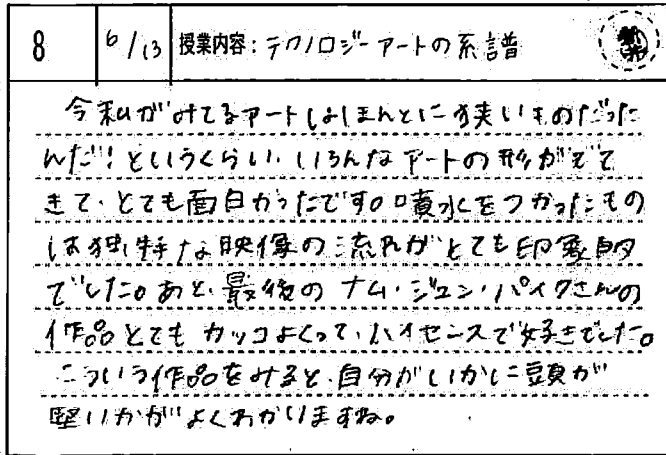 8 6/13 授業内容:テクノロジーアートの系譜
今私がみてるアートはほんとに狭いものだった
んだ!というくらい、いろんなアートの形がでて
きて、とても面白かったです。噴水をつかったもの
は独特な映像の流れがとても印象的
でした。あと、最後のナム・ジュン・パイクさんの
作品とてもカッコよくって、ハイセンスで好きでした。
こういう作品をみると、自分がいかに頭が
堅いかがよくわかりますね。